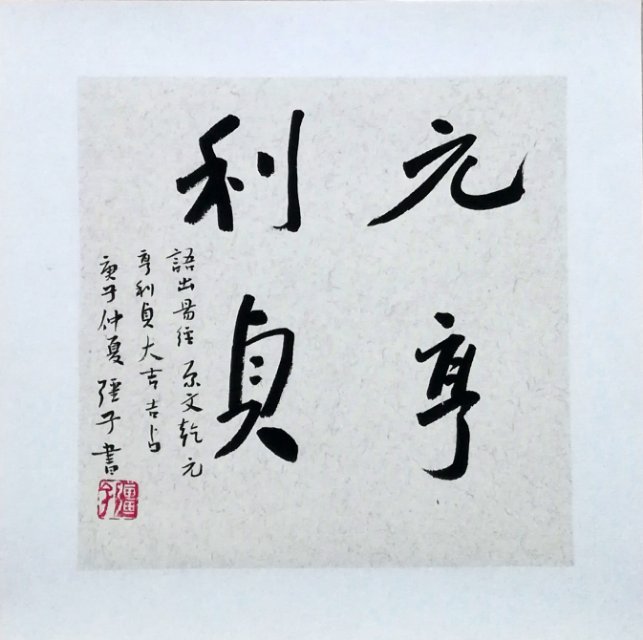 元亨
利貞
語出易経原文乾元
亨利貞大吉吉占
庚子仲夏彊子書